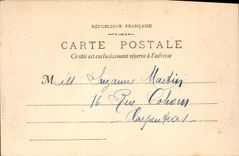 RÉPUBLIQUE FRANÇAISE
CARTE POSTALE
Ce côté est exclusivement réservé à l'adresse
Mlle Suzanne Martin
16 Rue Cohorn
Carpentras